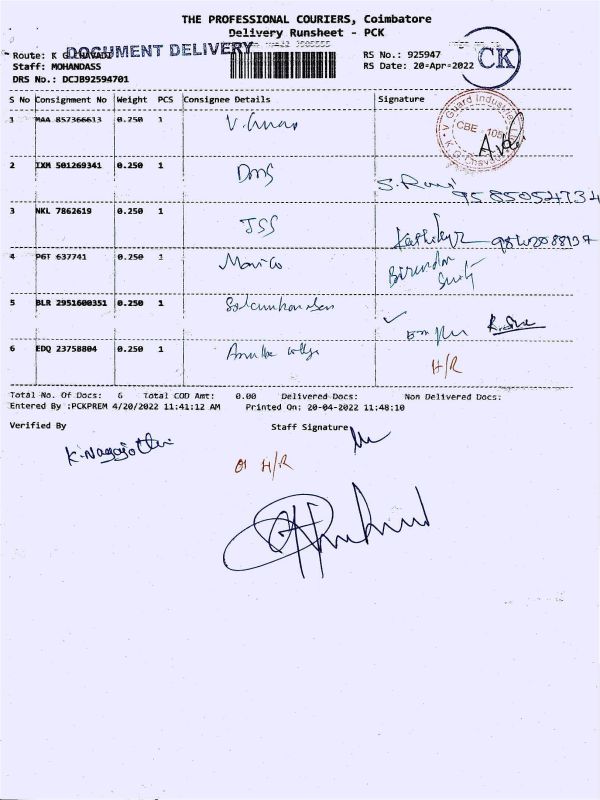 THE PROFESSIONAL COURIERS, Coimbatore
Delivery Runsheet - PCK
DOCUMENT DELIVERY
Route: K G CHAVADI
RS No.: 925947
Staff: MOHANDASS
RS Date: 20-Apr-2022
CK
DRS No.: DCJB92594701
S No Consignment No Weight PCS Consignee Details Signature
1 MAA 857366613 0.250 1 V.Guard
V Guard Industries
CBE
2 IXM 501269341 0.250 1 DMS S.Ravi
9585054734
3 NKL 7862619 0.250 1 JSS
4 PGT 637741 0.250 1 Marico Birendra Singh
5 BLR 2951600351 0.250 1
6 EDQ 23758804 0.250 1 H/R
Total No. Of Docs: 6 Total COD Amt: 0.00 Delivered Docs: Non Delivered Docs:
Entered By :PCKPREM 4/20/2022 11:41:12 AM Printed On: 20-04-2022 11:48:10
Verified By Staff Signature
K.Nagajothi
01 H/R